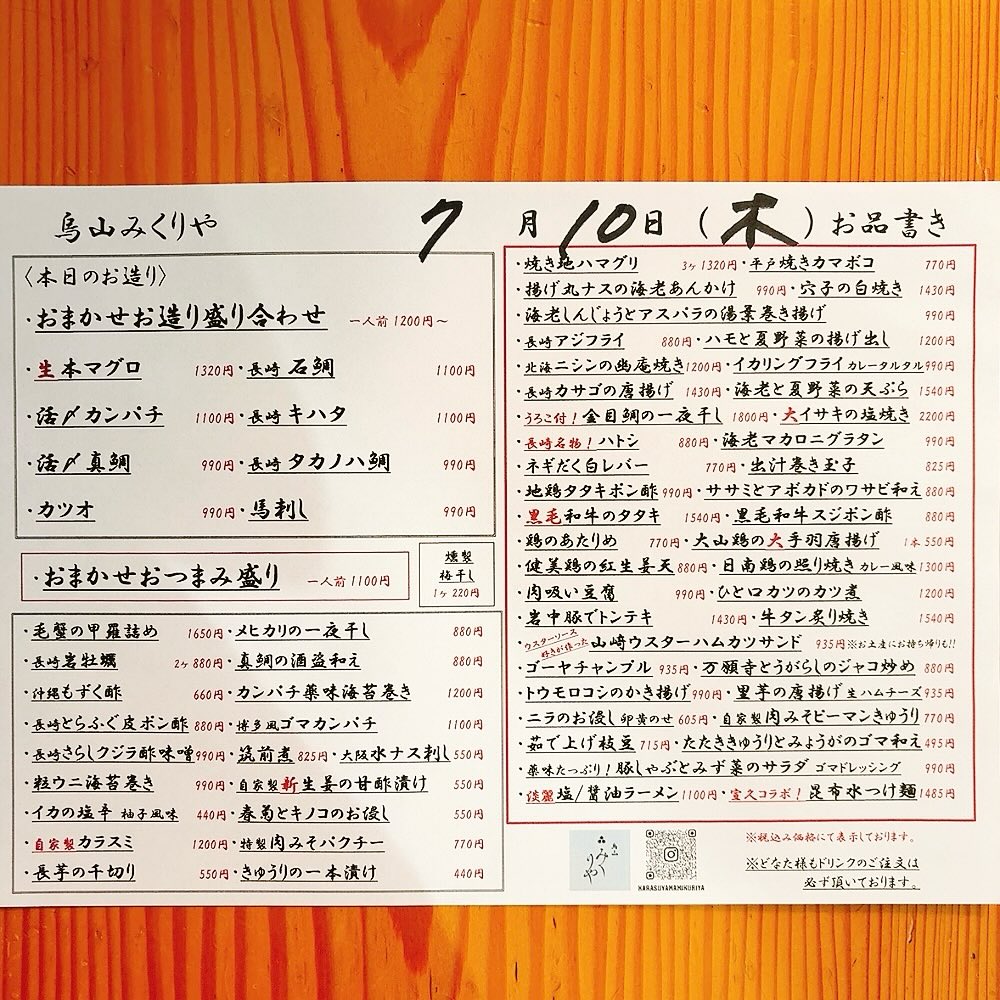 烏山みくりや 7月10日(木)お品書き
〈本日のお造り〉
・おまかせお造り盛り合わせ 一人前1200円〜
・生本マグロ 1320円・長崎 石鯛 1100円
・活〆カンパチ 1100円・長崎 キハタ 1100円
・活〆真鯛 990円・長崎 タカノハ鯛 990円
・カツオ 990円・馬刺し 990円
・おまかせおつまみ盛り 一人前1100円
燻製
梅干し
1ヶ220円
・毛蟹の甲羅詰め 1650円・メヒカリの一夜干し 880円
・長崎岩牡蠣 2ヶ880円・真鯛の酒盗和え 880円
・沖縄もずく酢 660円・カンパチ薬味海苔巻き 1200円
・長崎とらふぐ皮ポン酢 880円・博多風ゴマカンパチ 1100円
・長崎さらしクジラ酢味噌 990円・筑前煮 825円・大阪水ナス刺し 550円
・粒ウニ海苔巻き 990円・自家製新生姜の甘酢漬け 550円
・イカの塩辛 柚子風味 440円・春菊とキノコのお浸し 550円
・自家製カラスミ 1200円・特製肉みそパクチー 770円
・長芋の千切り 550円・きゅうりの一本漬け 440円
・焼き地ハマグリ 3ヶ1320円・平戸焼きカマボコ 770円
・揚げ丸ナスの海老あんかけ 990円・穴子の白焼き 1430円
・海老しんじょうとアスパラの湯葉巻き揚げ 990円
・長崎アジフライ 880円・ハモと夏野菜の揚げ出し 1200円
・北海ニシンの幽庵焼き 1200円・イカリングフライ カレータルタル 990円
・長崎カサゴの唐揚げ 1430円・海老と夏野菜の天ぷら 1540円
・うろこ付！金目鯛の一夜干し 1800円・大イサキの塩焼き 2200円
・長崎名物！ハトシ 880円・海老マカロニグラタン 990円
・ネギだく白レバー 770円・出汁巻き玉子 825円
・地鶏タタキポン酢 990円・ササミとアボカドのワサビ和え 880円
・黒毛和牛のタタキ 1540円・黒毛和牛スジポン酢 880円
・鶏のあたりめ 770円・大山鶏の大手羽唐揚げ 1本550円
・健美鶏の紅生姜天 880円・日南鶏の照り焼き カレー風味 1300円
・肉吸い豆腐 990円・ひと口カツのカツ煮 1200円
・岩中豚でトンテキ 1430円・牛タン炙り焼き 1540円
・ウスターソース好きが作った 山崎ウスターハムカツサンド 935円 ※お土産にお持ち帰りも!!
・ゴーヤチャンプル 935円・万願寺とうがらしのジャコ炒め 880円
・トウモロコシのかき揚げ 990円・里芋の唐揚げ 生ハムチーズ 935円
・ニラのお浸し 卵黄のせ 605円・自家製肉みそピーマンきゅうり 770円
・茹で上げ枝豆 715円・たたききゅうりとみょうがのゴマ和え 495円
・薬味たっぷり！豚しゃぶとみず菜のサラダ ゴマドレッシング 990円
・淡麗 塩/醤油ラーメン 1100円・宝久コラボ！昆布水つけ麺 1485円
みくりや
KARASUYAMAMIKURIYA
※税込み価格にて表示しております。
※どなた様もドリンクのご注文は
必ず頂いております。